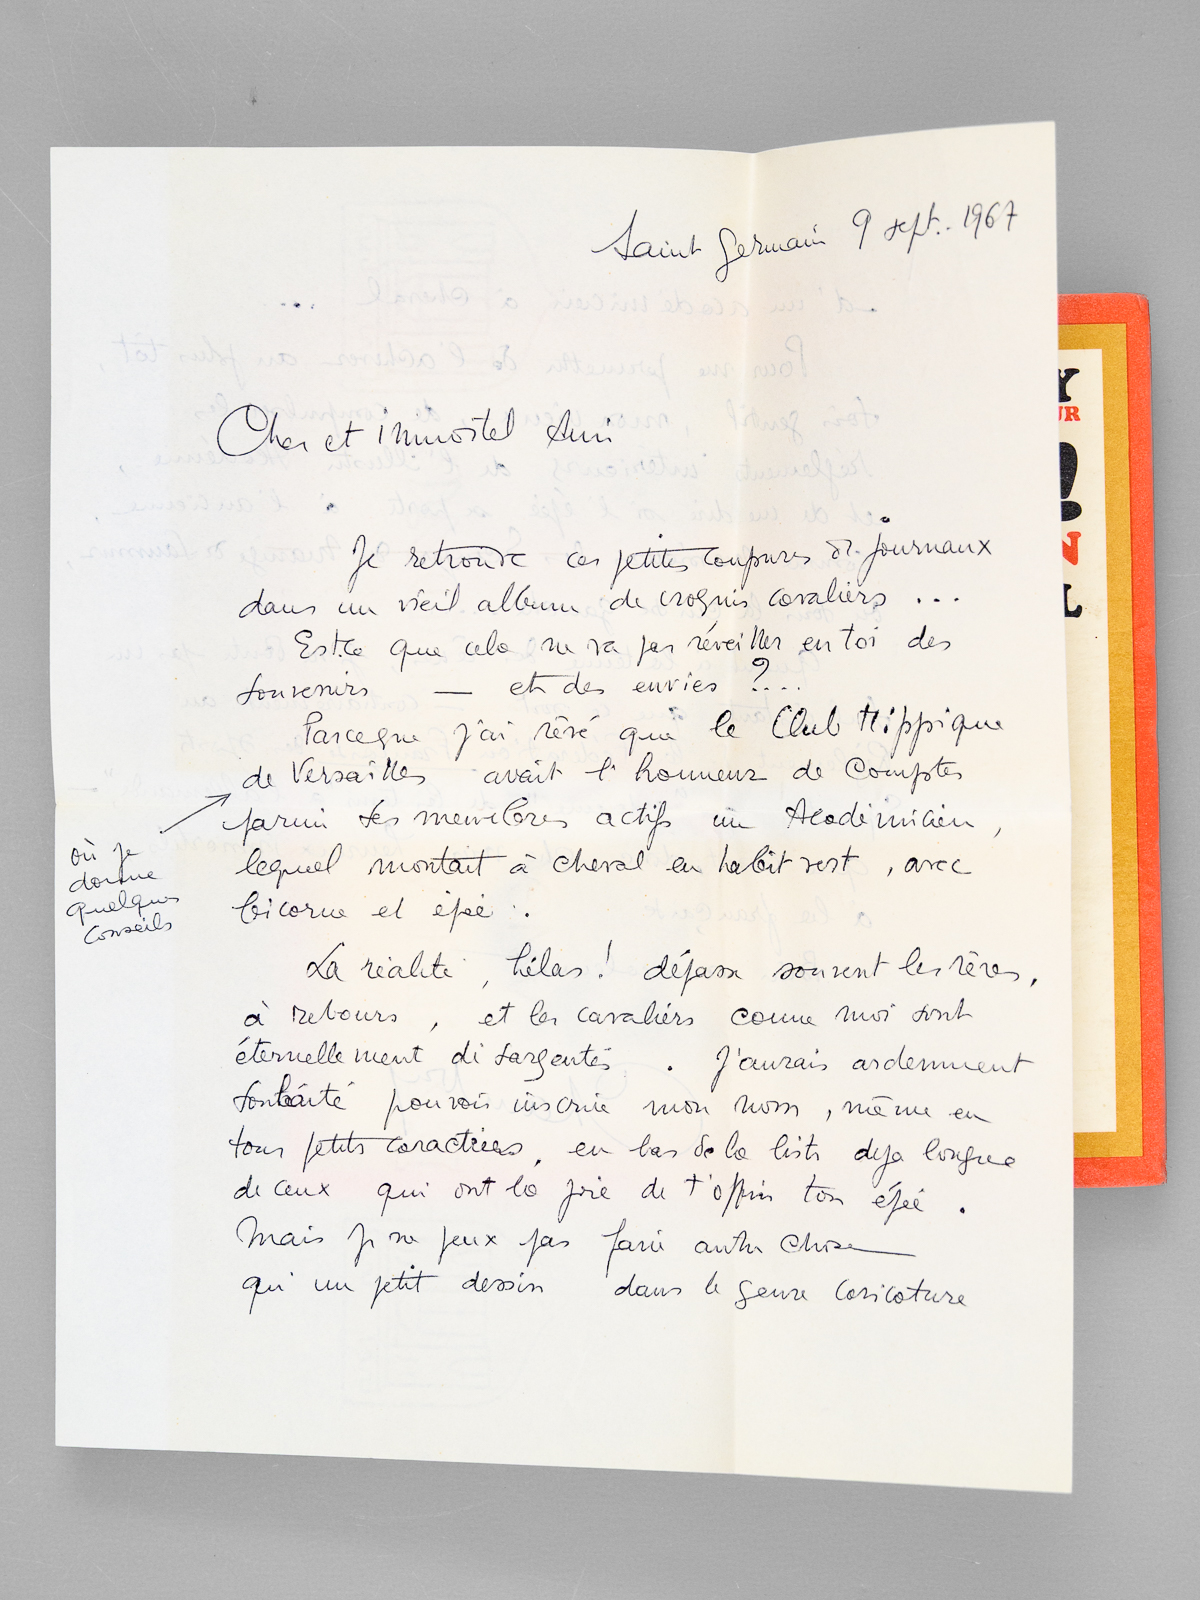 Saint Germain 9 sept. 1967
Cher et immortel Ami
Je retrouve ces petites coupures de journaux
dans un vieil album de croquis cavaliers ...
Est-ce que cela ne va pas réveiller en toi des
souvenirs — et des envies ?...
Parceque j'ai rêvé que le Club Hippique
de Versailles avait l'honneur de compter
parmi ses membres actifs un Académicien,
lequel montait à cheval en habit vert, avec
bicorne et épée.
où je
donne
quelques
conseils
La réalité, hélas! dépasse souvent les rêves,
à rebours, et les cavaliers comme moi sont
éternellement désargentés. J'aurais ardemment
souhaité pouvoir inscrire mon nom, même en
tous petits caractères, en bas de la liste deja longue
de ceux qui ont la joie de t'offrir ton épée.
Mais je ne peux pas faire autre chose
qu'un petit dessin dans le genre caricature
Y
UR
!
N
L